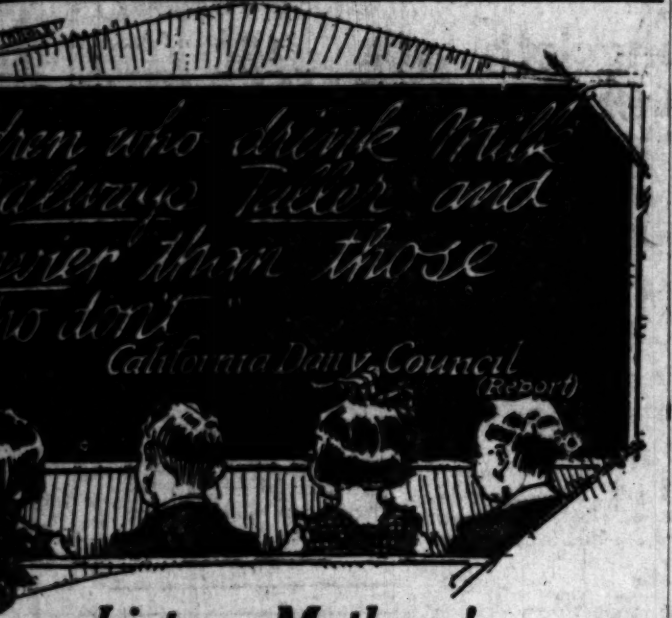 dren who drink Milk
always Taller and
vier than those
ho don't"
California Dairy Council
(Report)